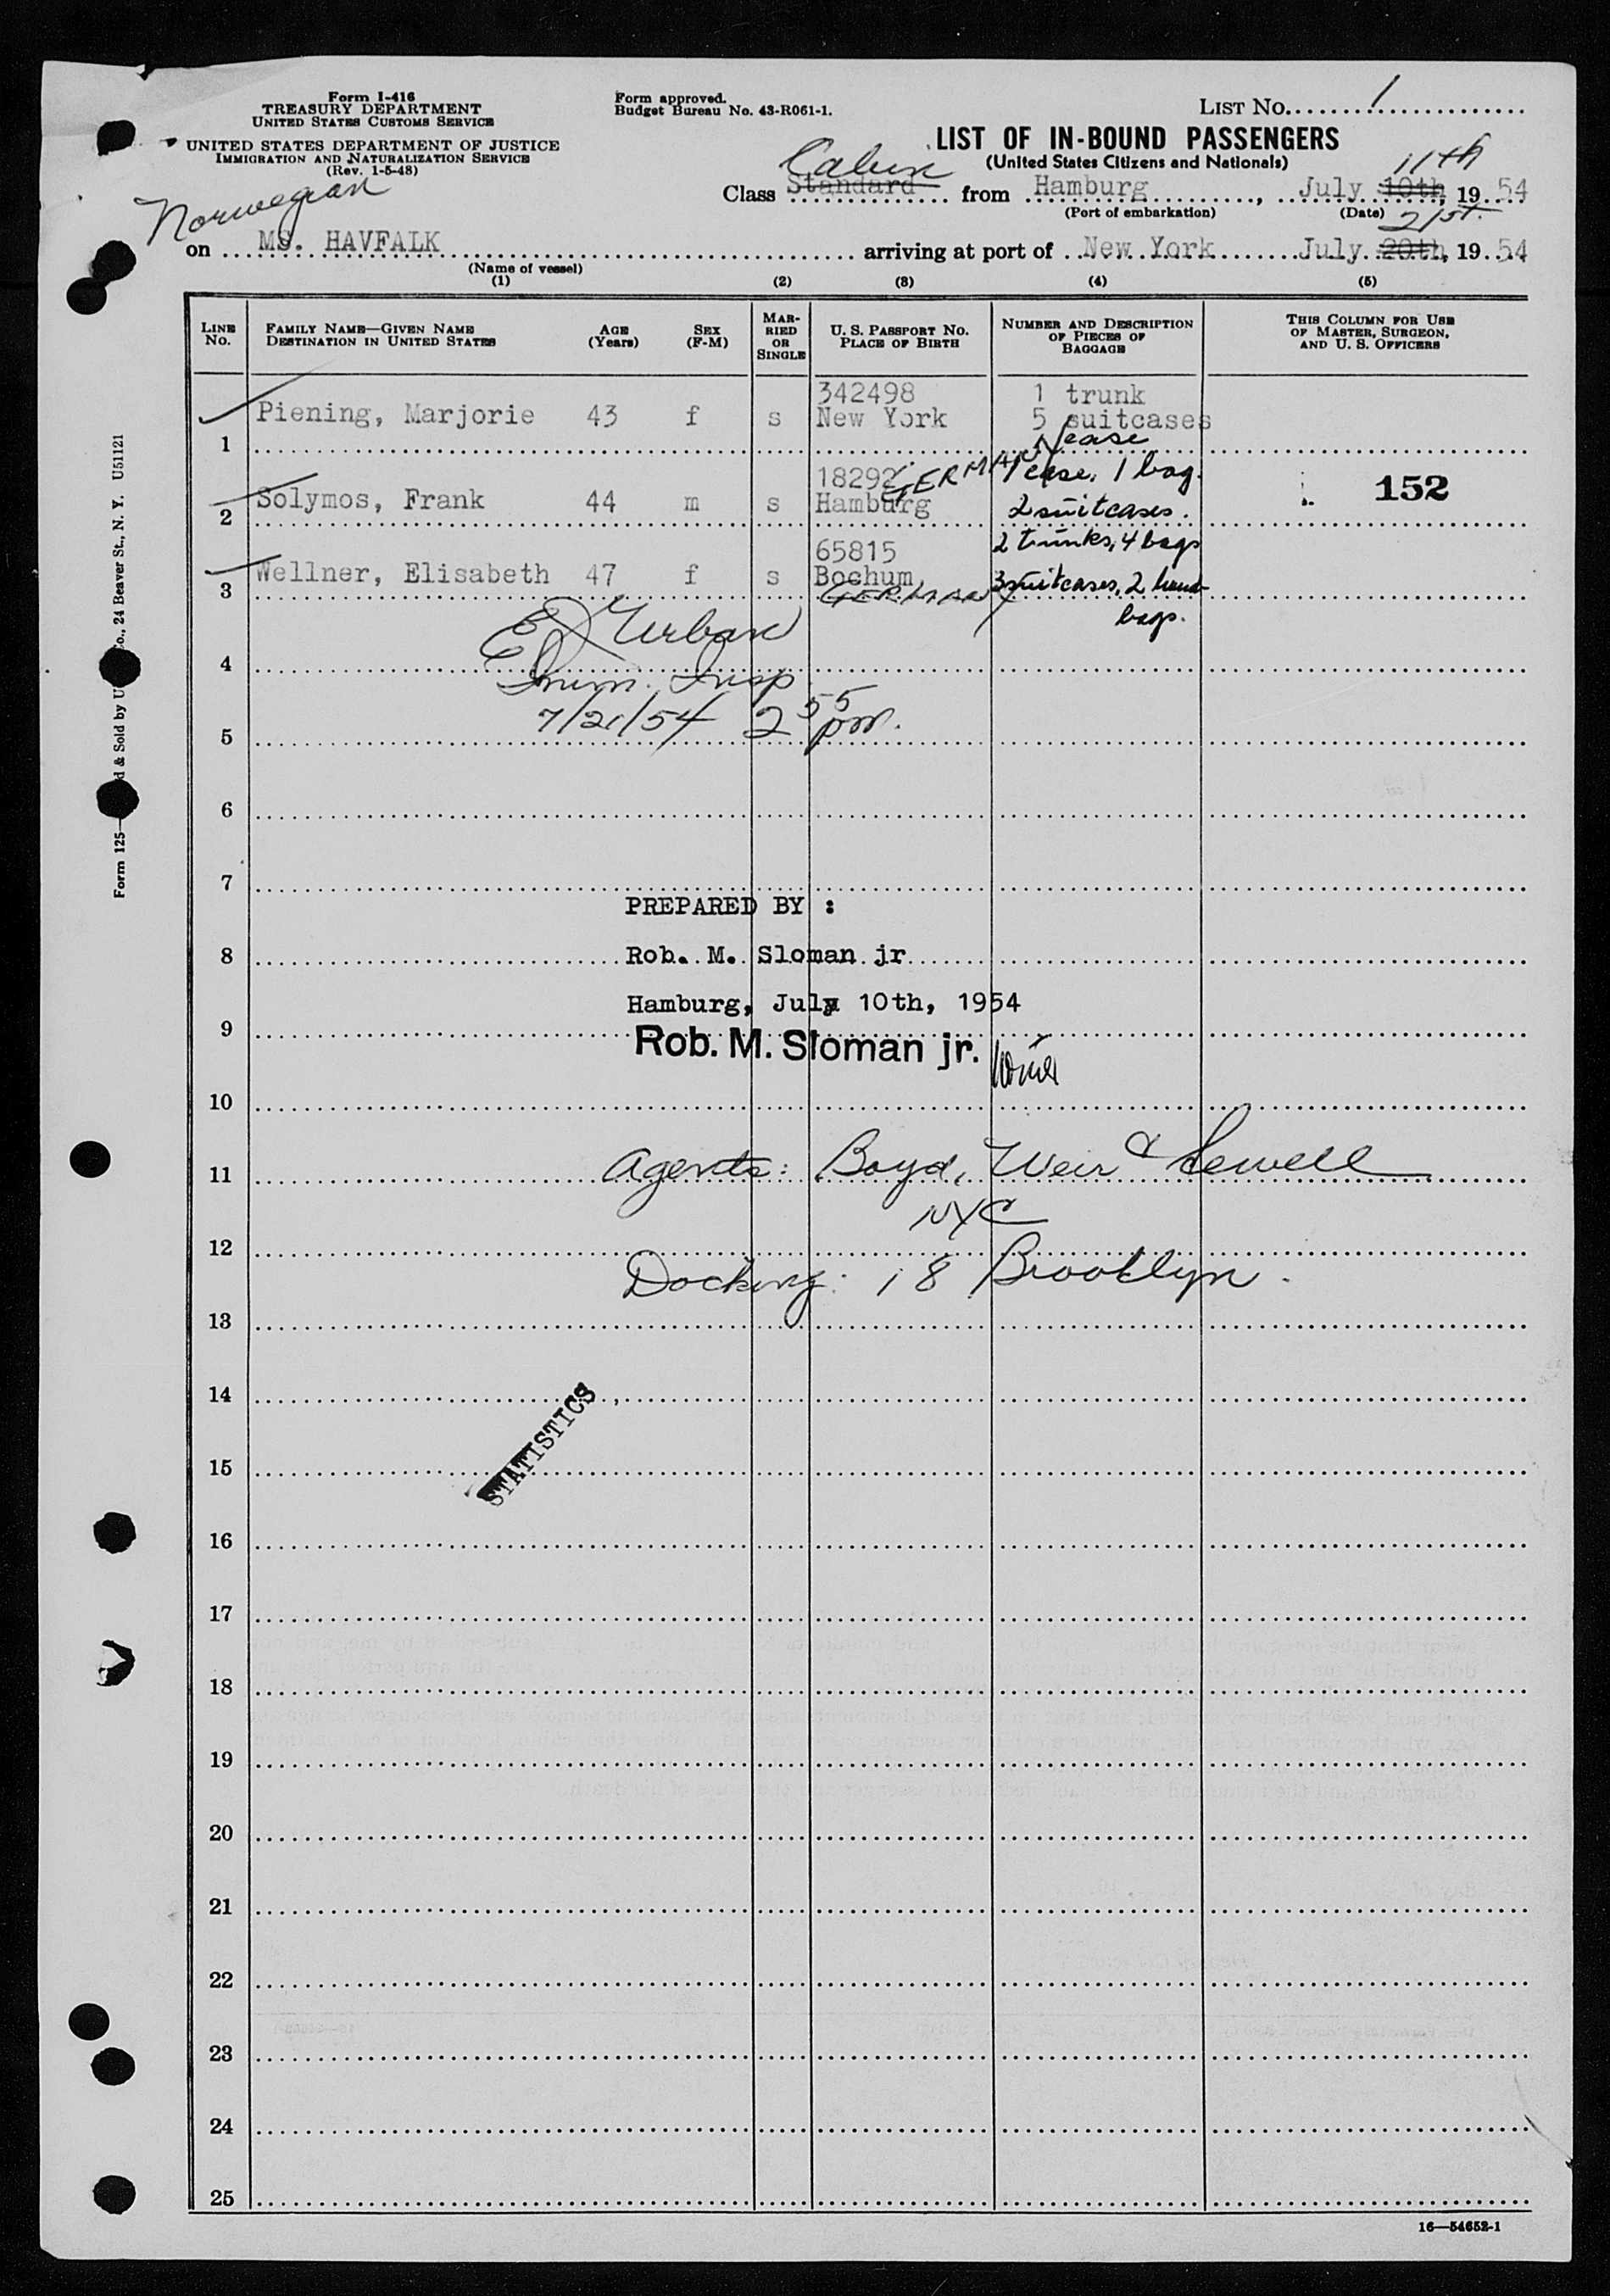 Form I-416
TREASURY DEPARTMENT
UNITED STATES CUSTOMS SERVICE
UNITED STATES DEPARTMENT OF JUSTICE
IMMIGRATION AND NATURALIZATION SERVICE
(Rev. 1-5-48)
Form approved.
Budget Bureau No. 43-R061-1.
LIST No. 1
LIST OF IN-BOUND PASSENGERS
(United States Citizens and Nationals)
Cabin 11th
Class Standard from Hamburg, July 10th, 1954
(Port of embarkation) (Date)
Norwegian 21st.
on MS. HAVFALK arriving at port of New York July 20th, 1954
(Name of vessel)
(1) (2) (3) (4) (5)
LINE No. FAMILY NAME—GIVEN NAME DESTINATION IN UNITED STATES AGE (Years) SEX (F-M) MARRIED OR SINGLE U. S. PASSPORT No. PLACE OF BIRTH NUMBER AND DESCRIPTION OF PIECES OF BAGGAGE THIS COLUMN FOR USE OF MASTER, SURGEON, AND U. S. OFFICERS
342498 1 trunk
1 Piening, Marjorie 43 f s New York 5 suitcases
case
18292 GERMANY 1 case, 1 bag.
2 Solymos, Frank 44 m s Hamburg 2 suitcases. 152
65815 2 trunks, 4 bags
3 Wellner, Elisabeth 47 f s Bochum GERMANY 3 suitcases, 2 hand-
bags.
Urban
4 Imm. Insp
5 7/21/54 2 55 pm.
6
7
PREPARED BY :
8 Rob. M. Sloman jr
Hamburg, July 10th, 1954
9 Rob. M. Sloman jr.
10
11 Agents: Boyd, Weir & Sewell
NYC
12
Docking: 18 Brooklyn.
13
14
STATISTICS
15
16
17
18
19
20
21
22
23
24
25
16—54652-1
Form 125— d & Sold by U Co., 24 Beaver St., N. Y. U51121